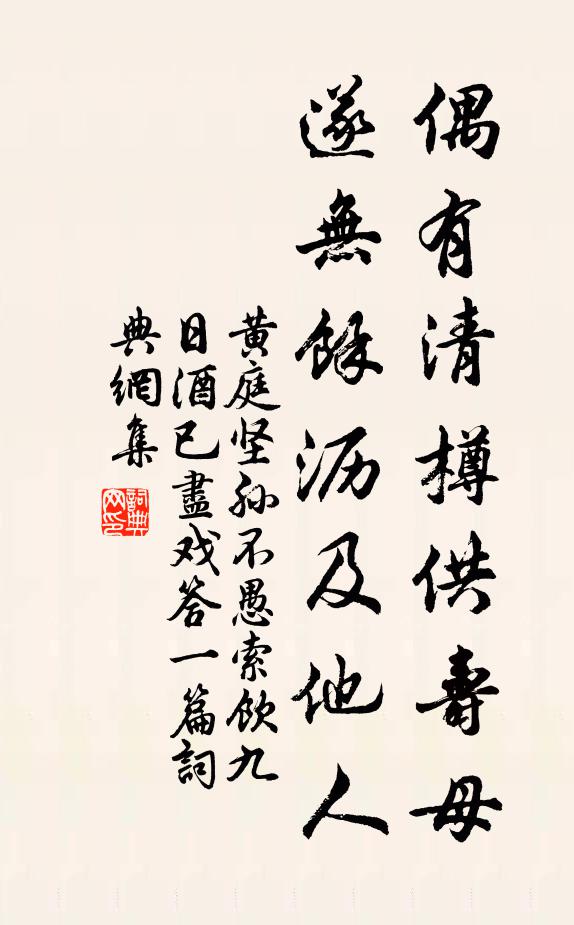 偶有清樽供壽母
遂無餘沥及他人
黄庭坚孙不愚索飲九
日酒已盡戏答一篇詞
典網集
詞典
网印